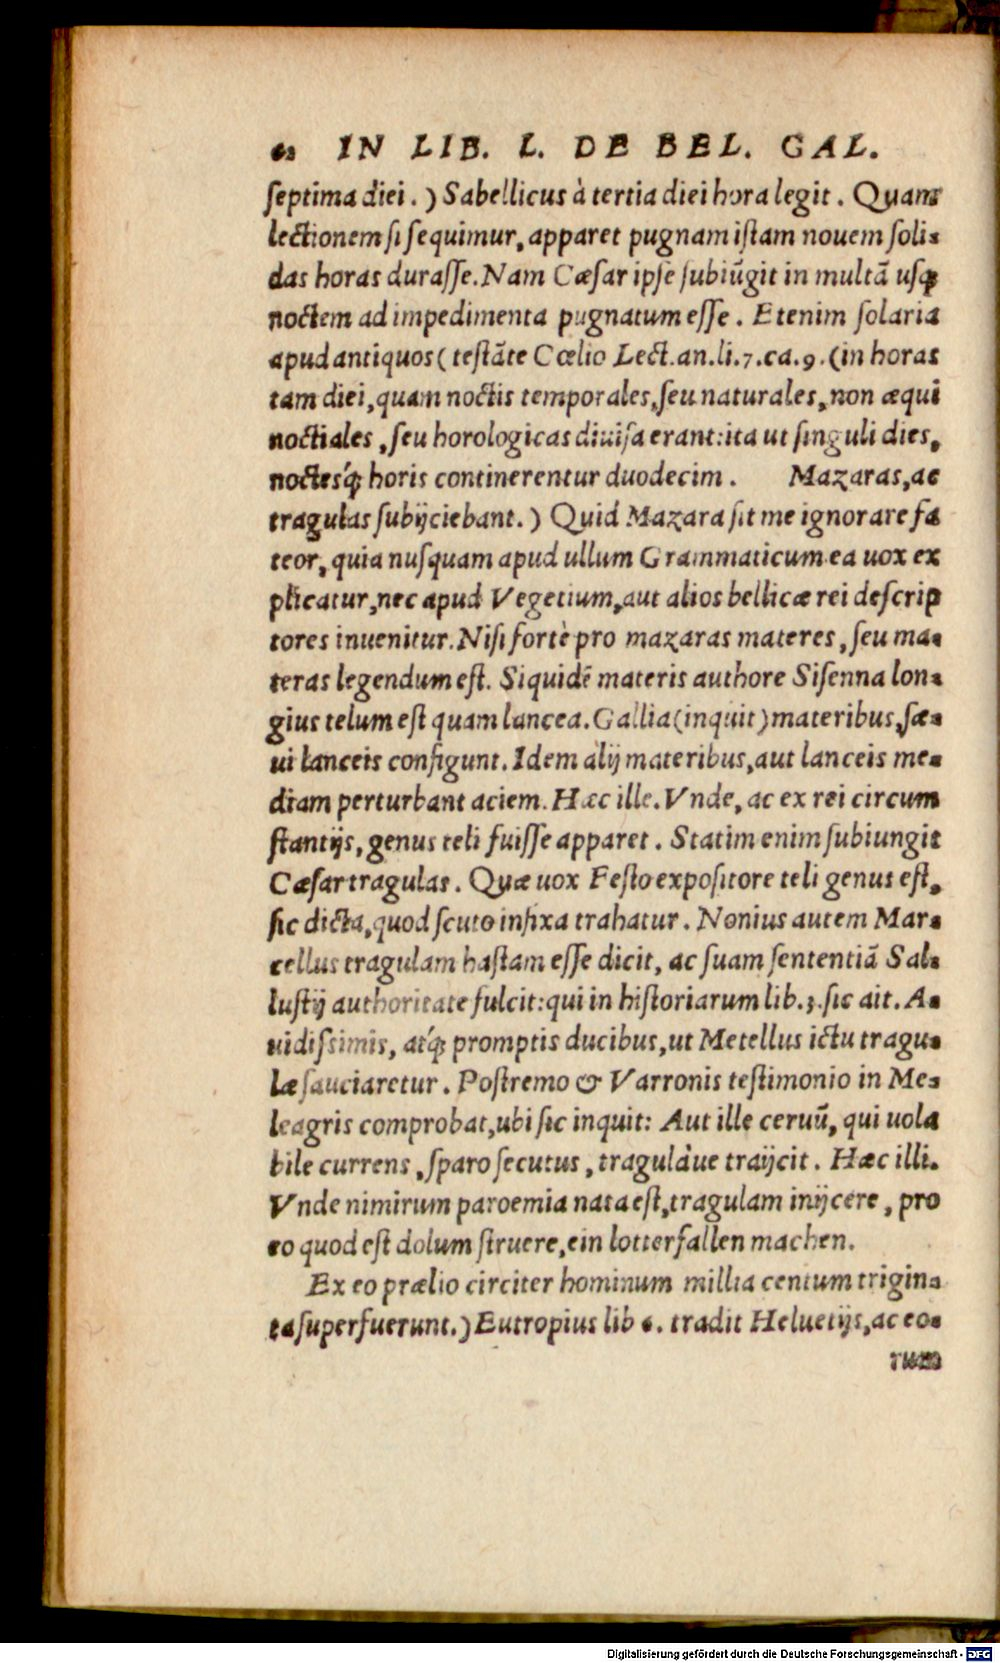 62 IN LIB. I. DE BEL. GAL.
septima diei. ) Sabellicus à tertia diei hora legit. Quam
lectionem si sequimur, apparet pugnam istam nouem soli-
das horas durasse. Nam Cæsar ipse subiūgit in multā usq;
noctem ad impedimenta pugnatum esse. Etenim solaria
apud antiquos ( testāte Cœlio Lect. an. li. 7. ca. 9. (in horas
tam diei, quam noctis temporales, seu naturales, non æqui
noctiales, seu horologicas diuisa erant: ita ut singuli dies,
noctesq́; horis continerentur duodecim. Mazaras, ac
tragulas subijciebant. ) Quid Mazara sit me ignorare fa
teor, quia nusquam apud ullum Grammaticum ea uox ex
plicatur, nec apud Vegetium, aut alios bellicæ rei descrip
tores inuenitur. Nisi fortè pro mazaras materes, seu ma-
teras legendum est. Siquidē materis authore Sisenna lon-
gius telum est quam lancea. Gallia (inquit) materibus, sæ-
ui lanceis configunt. Idem alij materibus, aut lanceis me-
diam perturbant aciem. Hæc ille. Vnde, ac ex rei circum
stantijs, genus teli fuisse apparet. Statim enim subiungit
Cæsar tragulas. Quæ uox Festo expositore teli genus est,
sic dicta, quod scuto infixa trahatur. Nonius autem Mar-
cellus tragulam hastam esse dicit, ac suam sententiā Sal-
lustij authoritate fulcit: qui in historiarum lib. 3. sic ait. A-
uidissimis, atq́; promptis ducibus, ut Metellus ictu tragu-
læ sauciaretur. Postremo & Varronis testimonio in Me-
leagris comprobat, ubi sic inquit: Aut ille ceruū, qui uola
bile currens, sparo secutus, tragulàue traijcit. Hæc illi.
Vnde nimirum paroemia nata est, tragulam inijcere, pro
eo quod est dolum struere, ein lotterfallen machen.
Ex eo prælio circiter hominum millia centum trigin-
ta superfuerunt.) Eutropius lib 6. tradit Heluetijs, ac eo-
rum
Digitalisierung gefördert durch die Deutsche Forschungsgemeinschaft - DFG